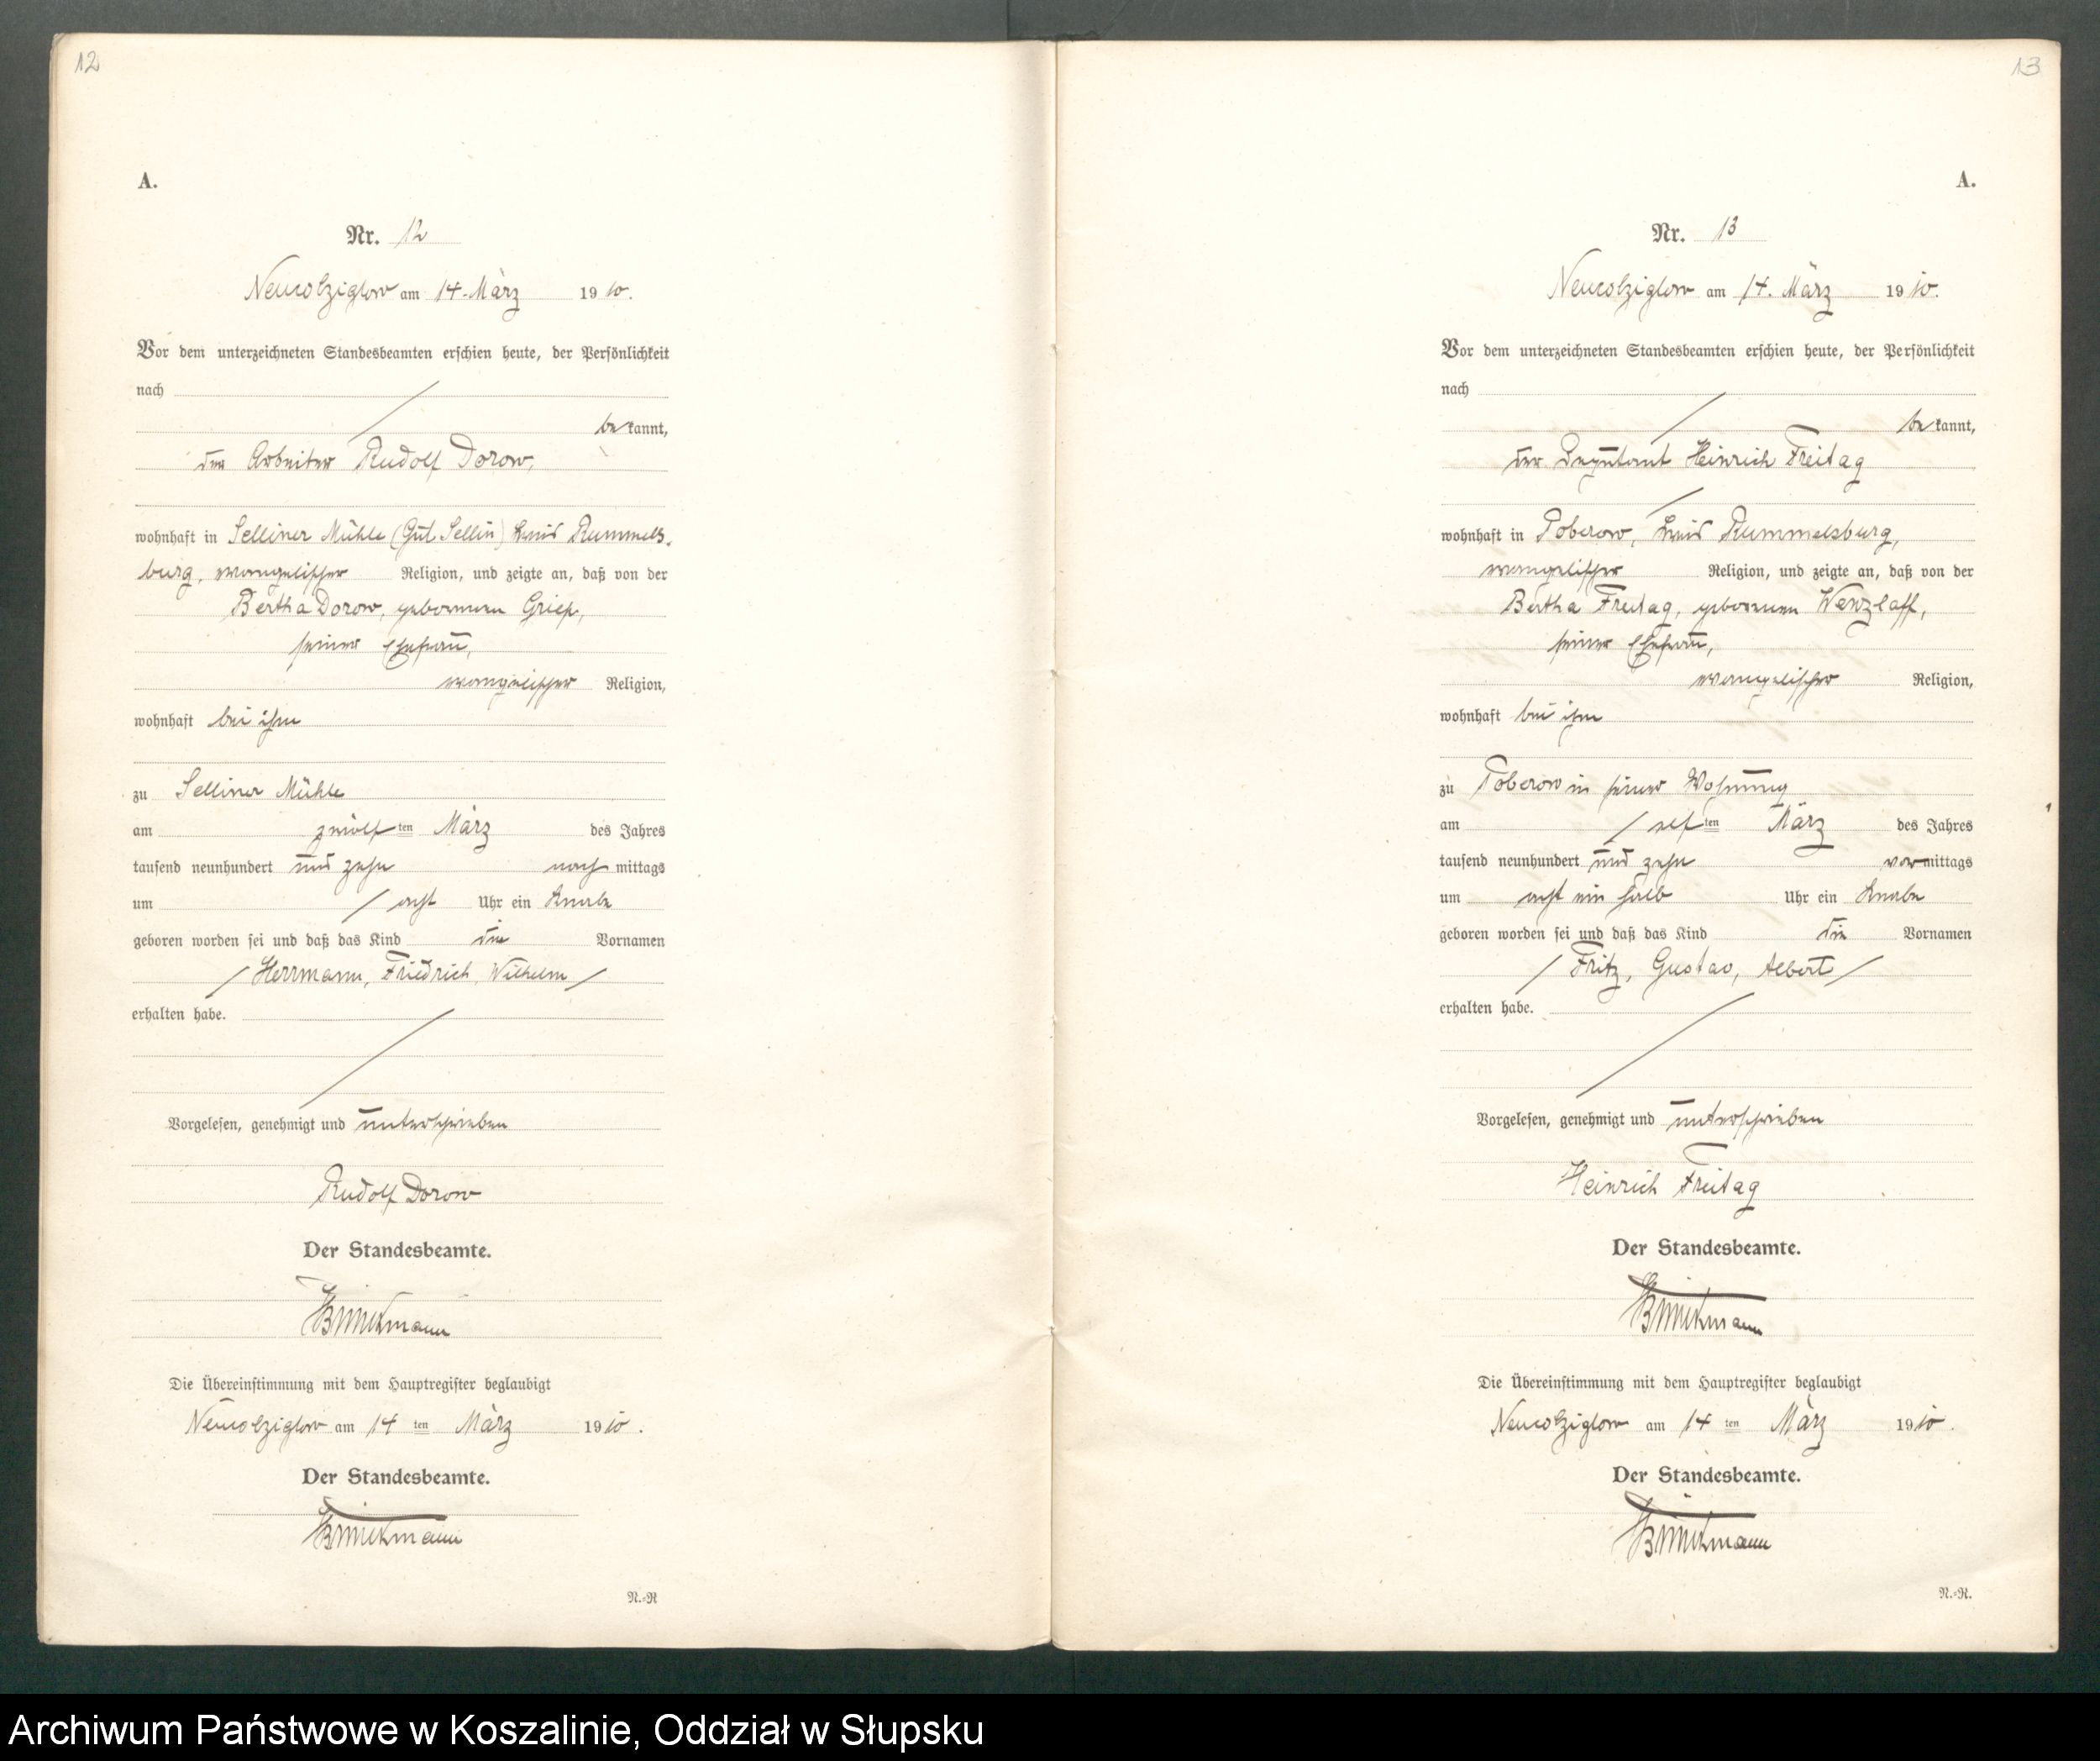 12
A.
Nr. 12
Neucolziglow am 14. März 1910.
Vor dem unterzeichneten Standesbeamten erschien heute, der Persönlichkeit
nach
bekannt,
der Arbeiter Rudolf Dorow,
wohnhaft in Selliner Mühle (Gut Sellin) Kreis Rummels-
burg, evangelischer Religion, und zeigte an, daß von der
Bertha Dorow, geborenen Griep,
seiner Ehefrau,
evangelischer Religion,
wohnhaft bei ihm
zu Selliner Mühle
am zwölften März des Jahres
tausend neunhundert und zehn nachmittags
um acht Uhr ein Knabe
geboren worden sei und daß das Kind die Vornamen
Herrmann, Friedrich, Wilhelm
erhalten habe.
Vorgelesen, genehmigt und unterschrieben
Rudolf Dorow
Der Standesbeamte.
Brinkmann
Die Übereinstimmung mit dem Hauptregister beglaubigt
Neucolziglow am 14ten März 1910.
Der Standesbeamte.
Brinkmann
N.-R
13
A.
Nr. 13
Neucolziglow am 14. März 1910.
Vor dem unterzeichneten Standesbeamten erschien heute, der Persönlichkeit
nach
bekannt,
der Deputant Heinrich Freitag
wohnhaft in Poberow, Kreis Rummelsburg,
evangelischer Religion, und zeigte an, daß von der
Bertha Freitag, geborenen Wenzlaff,
seiner Ehefrau,
evangelischer Religion,
wohnhaft bei ihm
zu Poberow in seiner Wohnung
am elften März des Jahres
tausend neunhundert und zehn vormittags
um acht ein halb Uhr ein Knabe
geboren worden sei und daß das Kind die Vornamen
Fritz, Gustav, Albert
erhalten habe.
Vorgelesen, genehmigt und unterschrieben
Heinrich Freitag
Der Standesbeamte.
Brinkmann
Die Übereinstimmung mit dem Hauptregister beglaubigt
Neucolziglow am 14ten März 1910.
Der Standesbeamte.
Brinkmann
N.-R.
Archiwum Państwowe w Koszalinie, Oddział w Słupsku